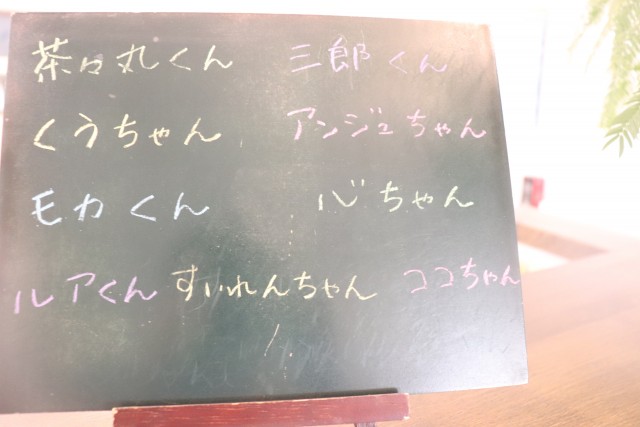 茶々丸くん 三郎くん
くうちゃん アンジュちゃん
モカくん 心ちゃん
ルアくん すいれんちゃん ココちゃん